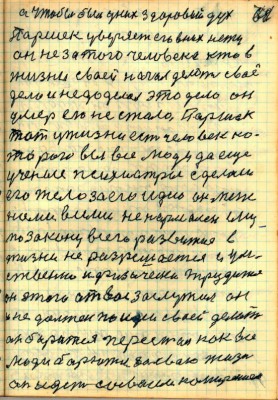 а чтобы был у них здоровый дух
Паршек уверяет его в них нету
он не за того человека кто в
жизни своей начал делать своё
дело и не доделал это дело он
умер его не стало, Паршек
тот у жизни есть человек ко-
торого вы все люди да еще
ученые психиатры сделали
его тело за его идею он меж
ними вами не нормален ему
по закону всего развития в
жизни не разрешается и ум-
ственно и физически трудится
он этого от вас заслужил он
не должен по идеи своей делать
он борится перестал как все
люди борются за свою жизнь
он идет совсем